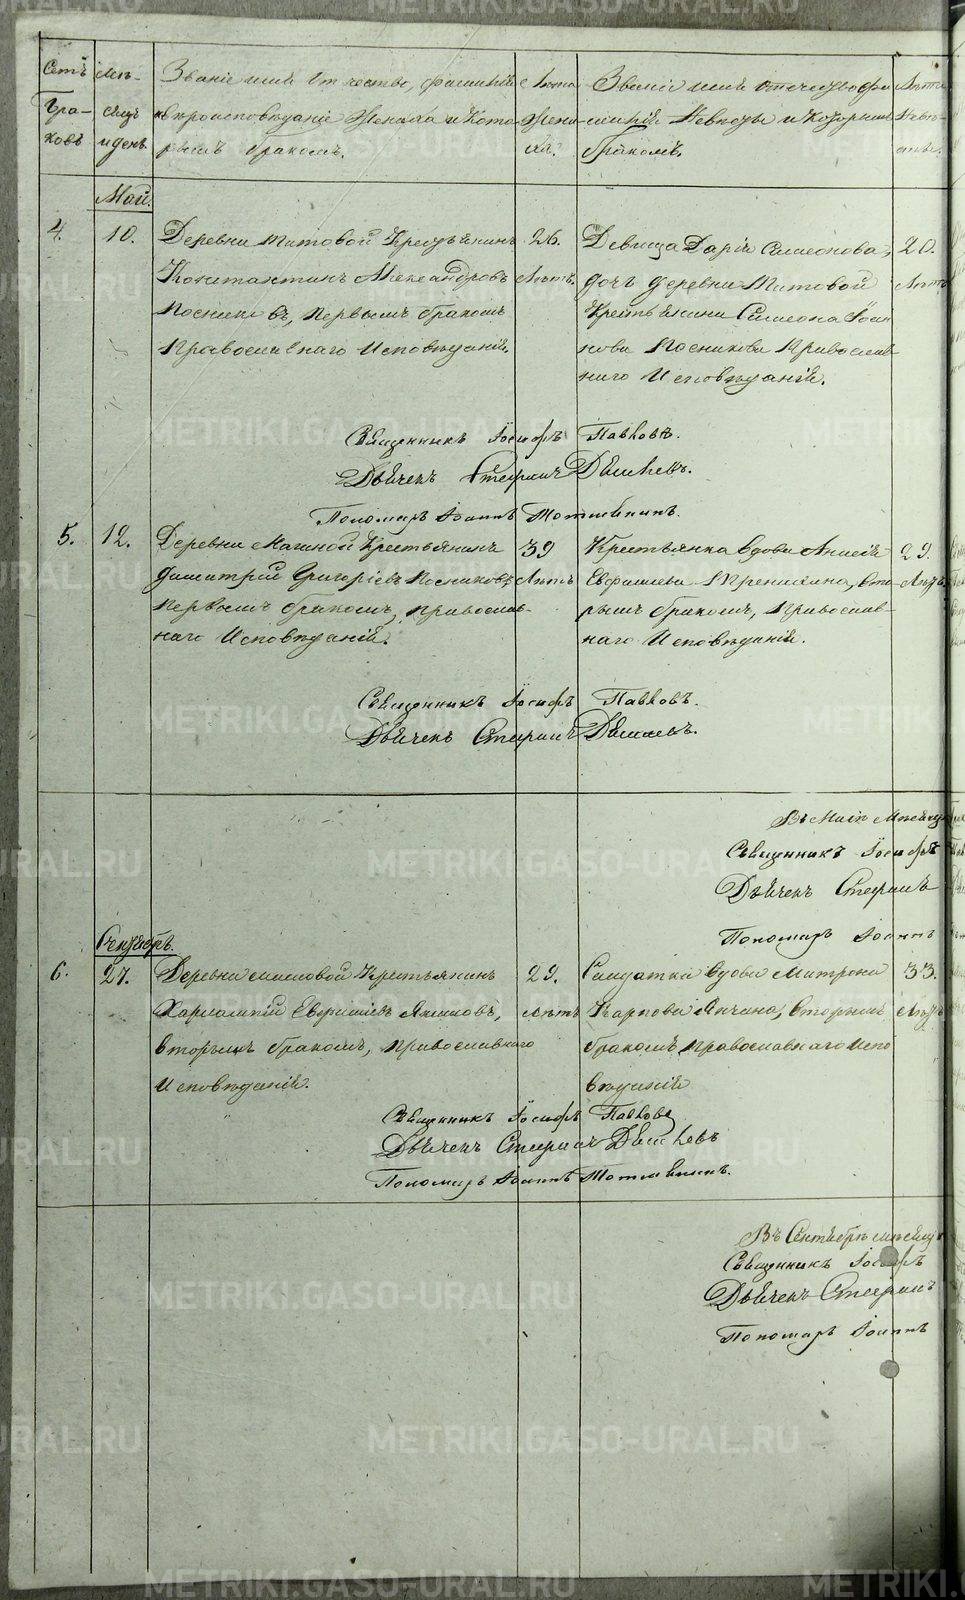 Счетъ Браковъ
Мѣсяцъ и день.
Званіе имя Отчество, фамилія
и вѣроисповѣданіе Жениха и Кото-
рымъ бракомъ.
Лѣта Жениха.
Званіе имя Отечество фа
милія Невѣсты и Которымъ
бракомъ.
Лѣта Невѣсты.
Май.
4.
10.
Деревни Титовой Крестьянинъ
Константинъ Александровъ
Посниковъ, первымъ бракомъ
Православнаго Исповѣданія.
26.
Лѣтъ.
Девица Дарія Симеонова,
дочь деревни Титовой
Крестьянина Симеона Іоан
нова Посникова Православ
наго Исповѣданія.
20.
Лѣтъ
Священникъ Іосифъ Павловъ.
Дьячекъ Стефанъ
Пономарь Іоаннъ
5.
12.
Деревни Крестьянинъ
Димитрій Григоріевъ Посниковъ
Первымъ бракомъ, православ-
наго Исповѣданія.
39
Лѣтъ
Крестьянка Вдова Анисія
Евфимиева, Вто-
рымъ бракомъ, Православ-
наго Исповѣданія.
29.
Лѣтъ.
Священникъ Іосифъ Павловъ.
Дьячекъ Стефанъ
Въ Маіѣ Мѣсяцѣ
Священникъ Іосифъ
Дьячекъ Стефанъ
Пономарь Іоаннъ
Сентябрь.
6.
27.
Деревни Крестьянинъ
Харлампій Евфиміевъ Якимовъ,
вторымъ бракомъ, православнаго
Исповѣданія.
29.
Лѣтъ
Солдатка Вдова Матрона
Карпова, Вторымъ
бракомъ, православнаго Испо
вѣданія
33.
Лѣтъ
Священникъ Іосифъ Павловъ
Дьячекъ Стефанъ
Пономарь Іоаннъ
Въ Сентябрѣ мѣсяцѣ
Священникъ Іосифъ
Дьячекъ Стефанъ
Пономарь Іоаннъ
METRIKI.GASO-URAL.RU